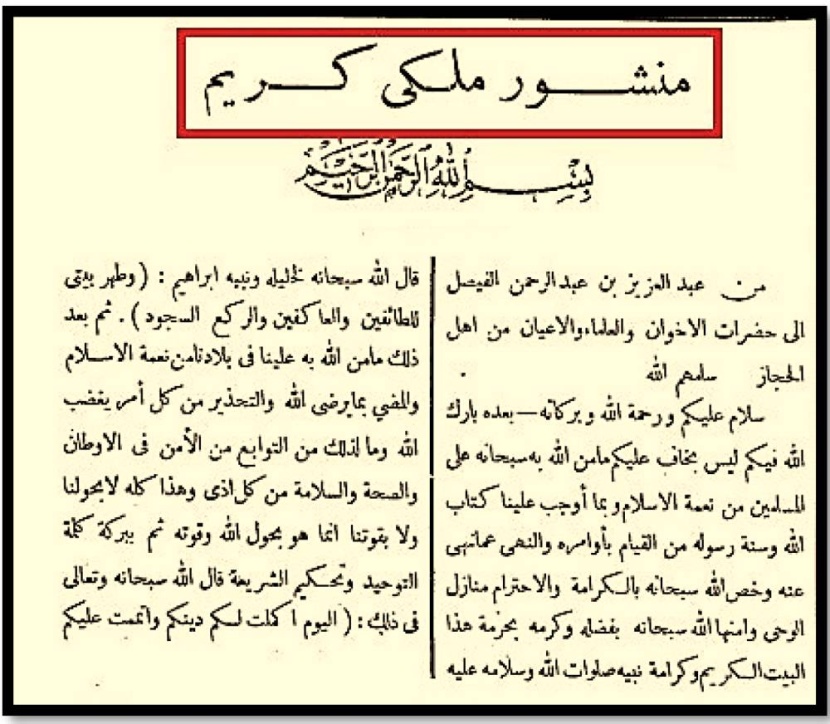 منشور ملكي كريم
بسم الله الرحمن الرحيم
من عبد العزيز بن عبدالرحمن الفيصل
الى حضرات الاخوان والعلماء والاعيان من اهل
الحجاز سلمهم الله .
سلام عليكم ورحمة الله وبركاته — بعده بارك
الله فيكم ليس بخاف عليكم مامن الله به سبحانه على
المسلمين من نعمة الاسلام وبما أوجب علينا كتاب
الله وسنة رسوله من القيام بأوامره والنهى عمانهى
عنه وخص الله سبحانه بالكرامة والاحترام منازل
الوحى وامنها الله سبحانه بفضله وكرمه بحرمة هذا
البيت الكريم وكرامة نبيه صلوات الله وسلامه عليه
قال الله سبحانه لخليله ونبيه ابراهيم : ( وطهر بيتى
للطائفين والعاكفين والركع السجود ) . ثم بعد
ذلك مامن الله به علينا فى بلادنا من نعمة الاسلام
والمضي بمايرضى الله والتحذير من كل أمر يغضب
الله وما لذلك من التوابع من الأمن فى الاوطان
والصحة والسلامة من كل اذى وهذا كله لابحولنا
ولا بقوتنا انما هو بحول الله وقوته ثم ببركة كلمة
التوحيد وتحكيم الشريعة قال الله سبحانه وتعالى
فى ذلك : ( اليوم أكملت لكم دينكم واتممت عليكم